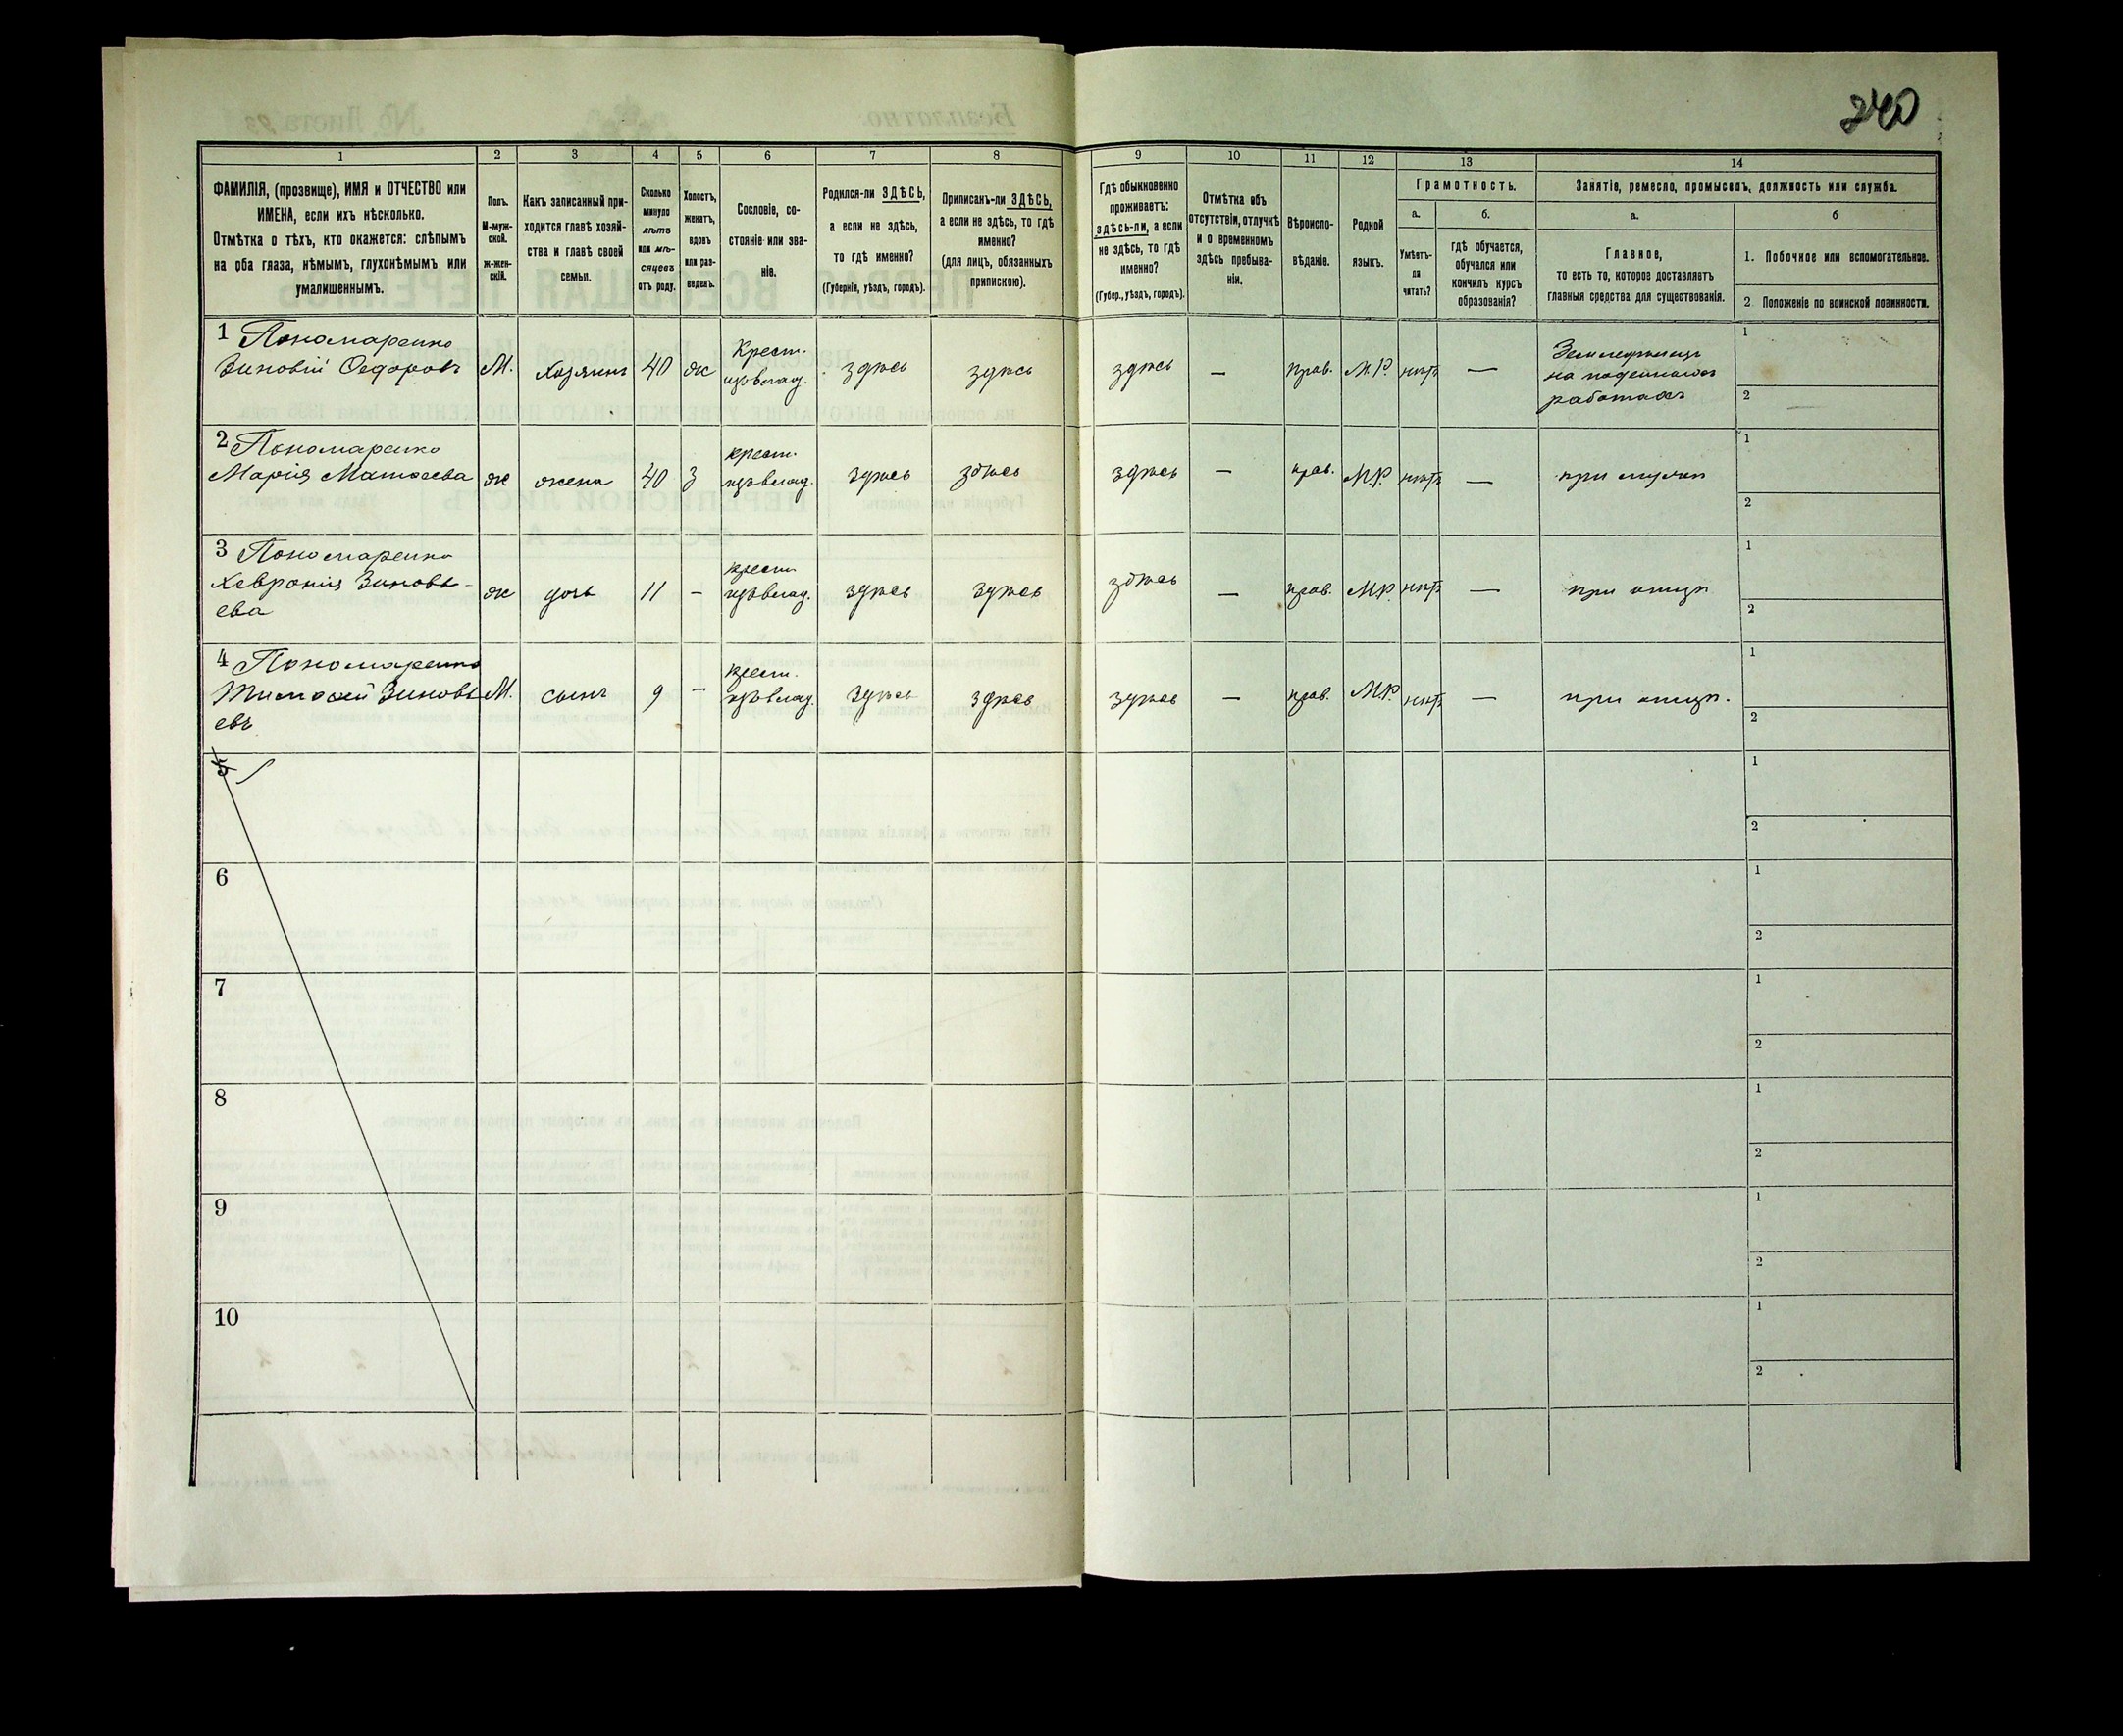 240
1
2
3
4
5
6
7
8
9
10
11
12
13
14
ФАМИЛІЯ, (прозвище), ИМЯ и ОТЧЕСТВО или
ИМЕНА, если ихъ нѣсколько.
Отмѣтка о тѣхъ, кто окажется: слѣпымъ
на оба глаза, нѣмымъ, глухонѣмымъ или
умалишеннымъ.
Полъ.
М-муж-
ской.
ж-жен-
скій.
Какъ записанный при-
ходится главѣ хозяй-
ства и главѣ своей
семьи.
Сколько
минуло
лѣтъ
или мѣ-
сяцевъ
отъ роду.
Холостъ,
женатъ,
вдовъ
или раз-
веденъ.
Сословіе, со-
стояніе или зва-
ніе.
Родился-ли ЗДѢСЬ,
а если не здѣсь,
то гдѣ именно?
(Губернія, уѣздъ, городъ).
Приписанъ-ли ЗДѢСЬ,
а если не здѣсь, то гдѣ
именно?
(для лицъ, обязанныхъ
припискою).
Гдѣ обыкновенно
проживаетъ:
здѣсь-ли, а если
не здѣсь, то гдѣ
именно?
(Губер., уѣздъ, городъ).
Отмѣтка объ
отсутствіи, отлучкѣ
и о временномъ
здѣсь пребыва-
ніи.
Вѣроиспо-
вѣданіе.
Родной
языкъ.
Грамотность.
а.
Умѣетъ-
ли
читать?
б.
гдѣ обучается,
обучался или
кончилъ курсъ
образованія?
Занятіе, ремесло, промыселъ, должность или служба.
а.
Главное,
то есть то, которое доставляетъ
главныя средства для существованія.
б
1. Побочное или вспомогательное.
2 Положеніе по воинской повинности.
1 Пономаренко
Зиновій Федоровъ
М.
хозяинъ
40
ж
Крест.
здѣсь
здѣсь
здѣсь
—
прав.
М.Р.
нѣтъ
—
на поденныхъ
работахъ
1
2
2 Пономаренко
Марія Матѳеева
ж
жена
40
З
крест.
здѣсь
здѣсь
здѣсь
—
прав.
М.Р.
нѣтъ
—
при мужѣ
1
2
3 Пономаренко
Хевронія Зиновь-
ева
ж
дочь
11
-
крест.
здѣсь
здѣсь
здѣсь
—
прав.
М.Р.
нѣтъ
—
при отцѣ
1
2
4 Пономаренко
Тимоѳей Зиновь
евъ
М.
сынъ
9
-
крест.
здѣсь
здѣсь
здѣсь
—
прав.
М.Р.
нѣтъ
—
при отцѣ.
1
2
5
1
2
6
1
2
7
1
2
8
1
2
9
1
2
10
1
2